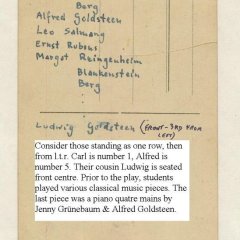 Berg
Alfred Goldsteen
Leo Salmang
Ernst Rubens
Margot Reingenheim
Blankenstein
Berg
Ludwig Goldsteen (FRONT - 3RD FROM LEFT)
Consider those standing as one row, then
from l.t.r. Carl is number 1, Alfred is
number 5. Their cousin Ludwig is seated
front centre. Prior to the play, students
played various classical music pieces. The
last piece was a piano quatre mains by
Jenny Grünebaum & Alfred Goldsteen.